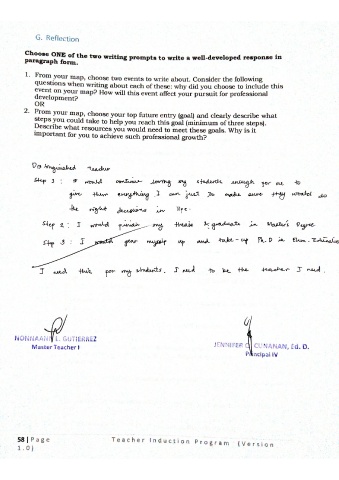 G. Reflection
Choose ONE of the two writing prompts to write a well-developed response in
paragraph form.
1. From your map, choose two events to write about. Consider the following
questions when writing about each of these: why did you choose to include this
event on your map? How will this event affect your pursuit for professional
development?
OR
2. From your map, choose your top future entry (goal) and clearly describe what
steps you could take to help you reach this goal (minimum of three steps).
Describe what resources you would need to meet these goals. Why is it
important for you to achieve such professional growth?
Distinguished Teacher
Step 1: I would continue loving my students enough for me to
give them everything I can just to make sure they would do
the right decisions in life.
Step 2: I would finish my thesis & graduate in Master's Degree
Step 3: I would gear myself up and take-up Ph.D in Elem. Education
I need this for my students. I need to be the teacher I need.
L. GUTIERREZ
Master Teacher I
JENNIFER CUNANAN, Ed. D.
Principal IV
58 | Page Teacher Induction Program (Version
1.0)